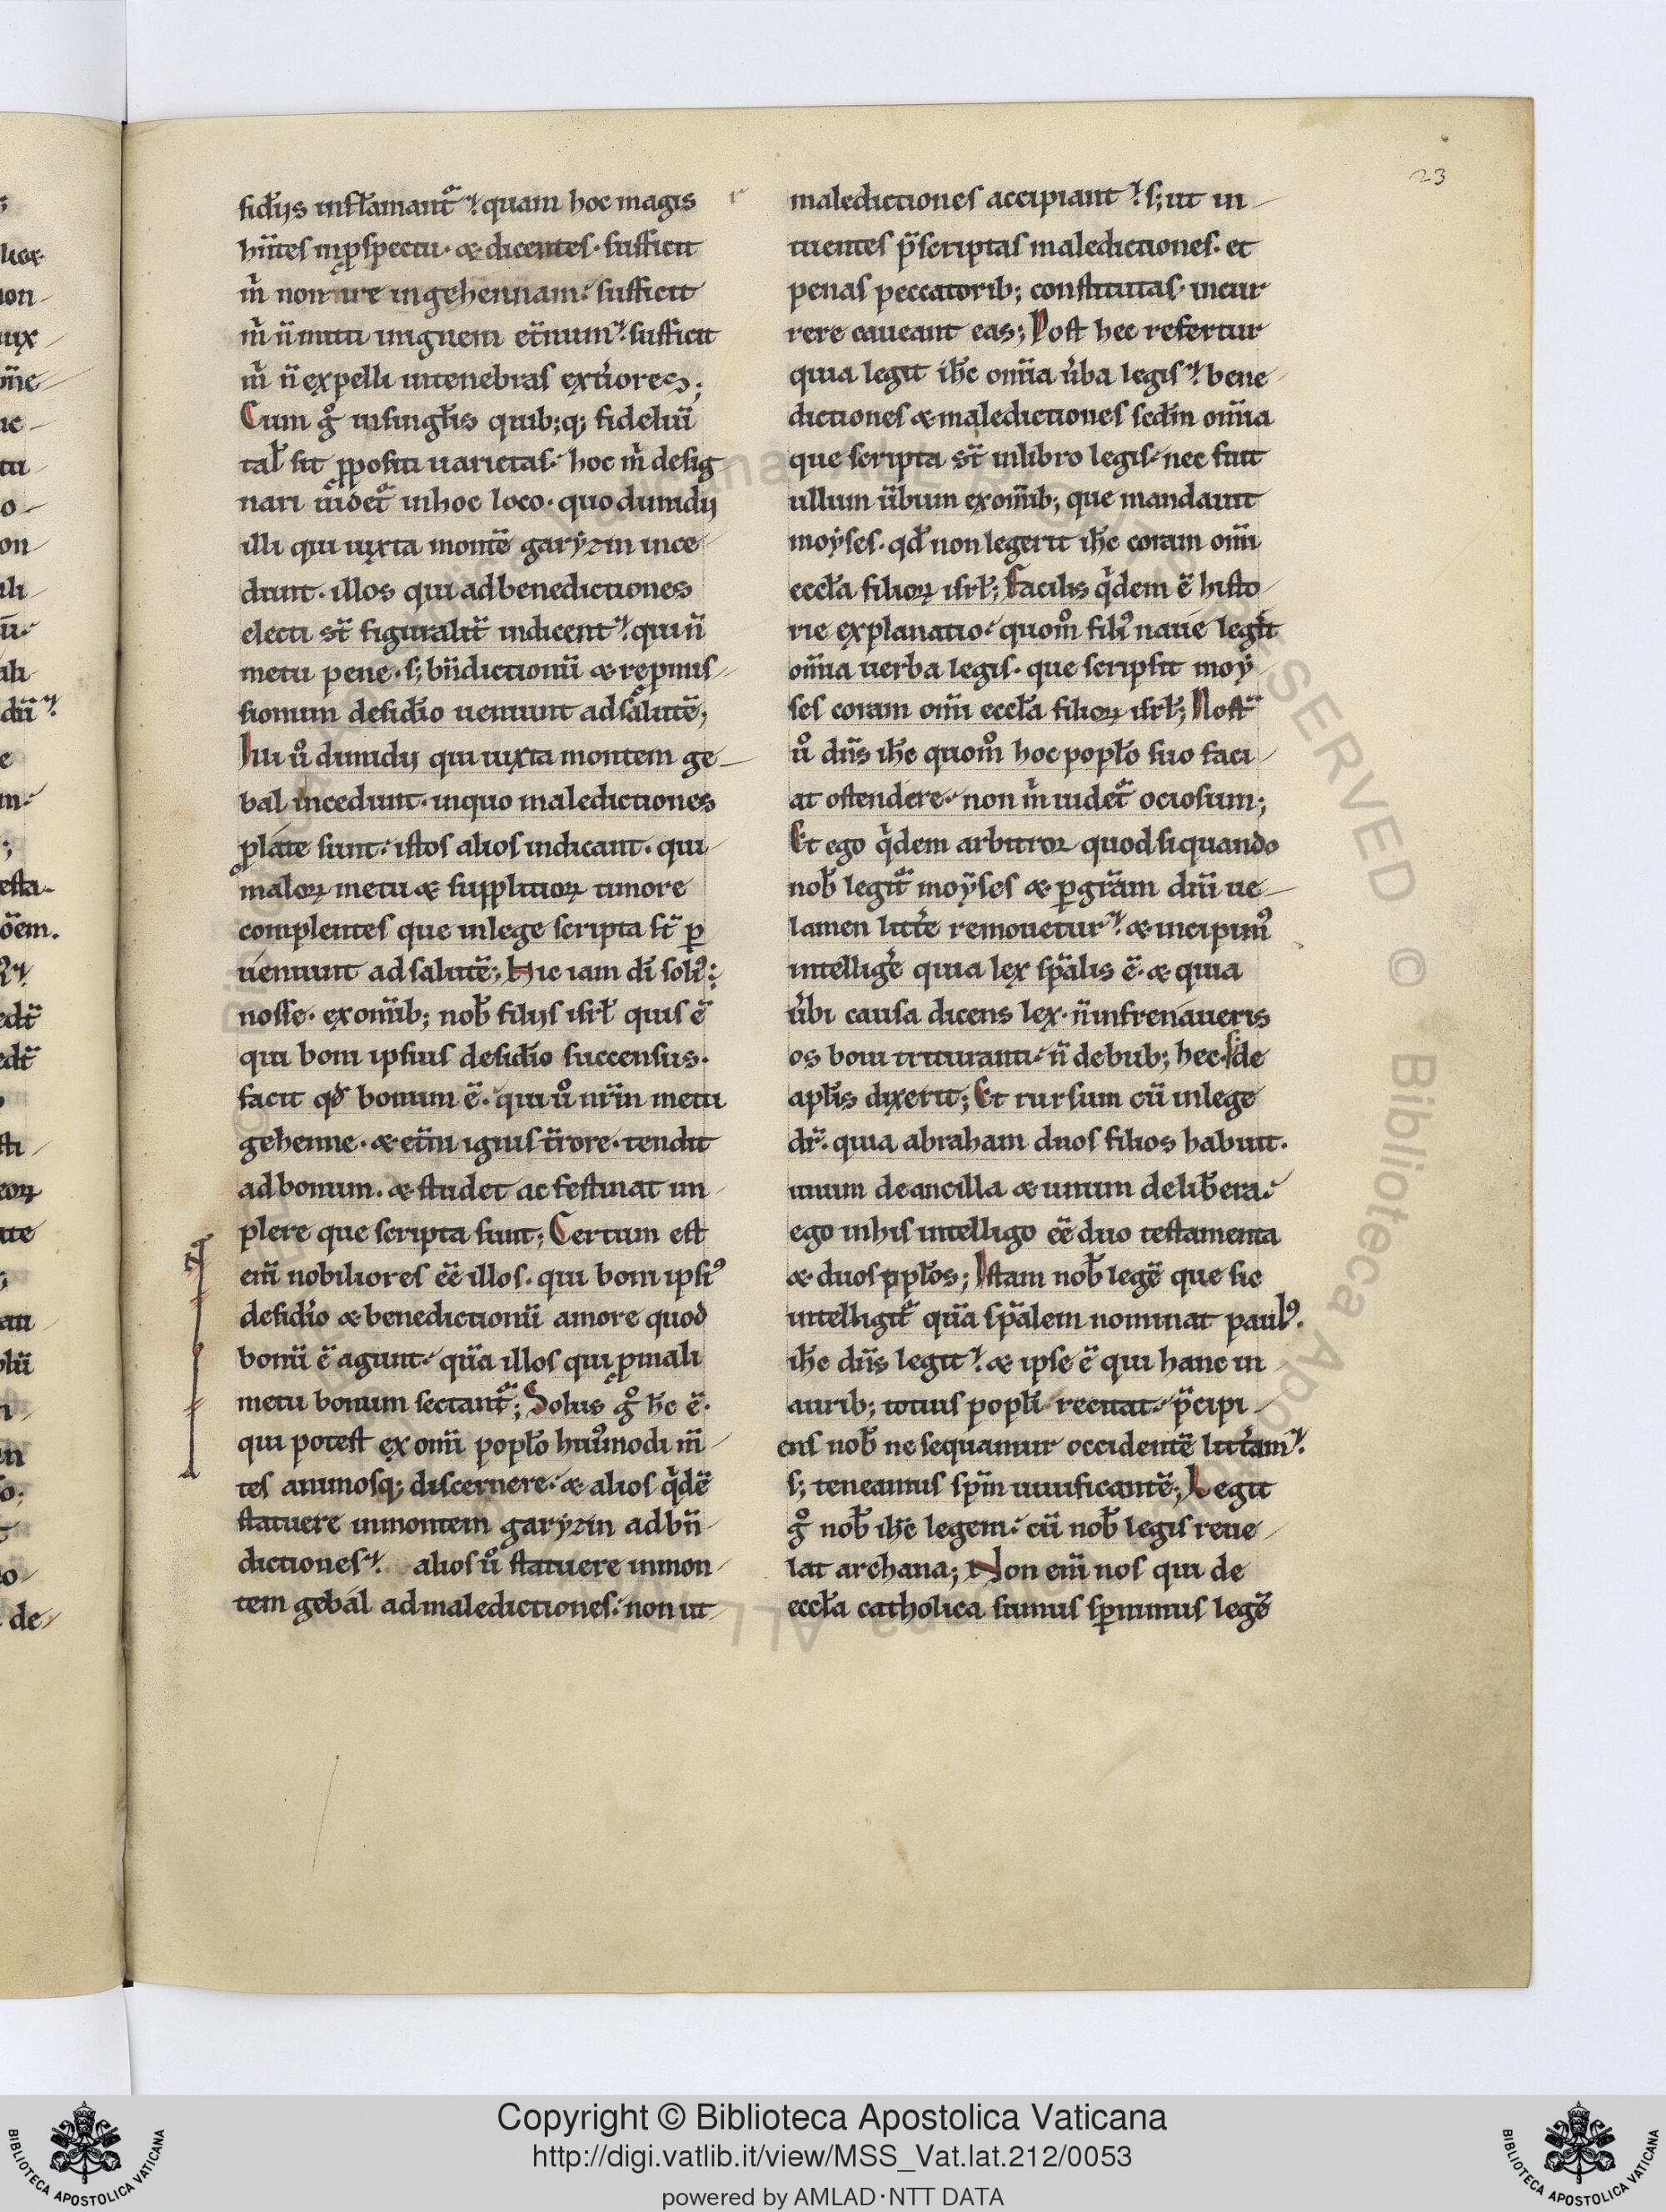 23
fidijs inflamant᷑. quam hoc magis
hn̄tes inp̱spectu· & dicentes· sufficit
m̓ non ire ingehennam· sufficit
m̓ n̄ mitti inignem et̄num· sufficit
m̓ n̄ expelli intenebras ext̓iores;
Cum gͦ insingl̄is quib;q; fideliū
tal̄ sit p̱positi uarietas· hoc m̓ desig
nari uidet᷑ inhoc loco· quo dimidij
illi qui iuxta montē garyzin ince-
dunt· illos qui adbenedictiones
electi st̄ figuralit̄ indicent· qui n̄
metu pene· s; bn̄dictionū & repmis-
sionum desid̓io ueniunt adsalutē;
Illi uͦ dimidij qui iuxta montem ge-
bal incedunt· inquo maledictiones
p̱late sunt· istos alios indicant· qui
maloꝝ metu & suppliciooꝝ timore
complentes que inlege scripta st̄ ꝑ
ueniunt ad salutē; Hic iam dī soliꝰ:
nosse· exomīb; nob̄ filijs isrl̄ quis ē
qui boni ipsius desid̓io succensus·
facit qd̄ bonum ē· qui uͦ nr̄m metu
gehenne· & et̄ni ignis t̄rore· tendit
adbonum· & studet ac festinat im-
plere que scripta sunt; Certum est
eni᷒ nobiliores eē illos· qui boni ipsiꝰ
desid̓io & benedictionū amore quod
bonū ē agunt· quā illos qui ꝓ mali
metu bonum sectant᷑; Solus gͦ ih̄c ē·
qui potest ex omī popl̄o huiꝰmodi m̄-
tes animosq; discernere· & alios q̓dē
statuere inmontem garyzin adbn̄-
dictiones· alios uͦ statuere inmon-
tem gebal admaledictiones· non ut
maledictiones accipiant· s; ut in-
tuentes p̄scriptas maledictiones· et
penas peccatorib; constitutas· incur
rere caueant eas; Post hec refertur
quia legit ih̄c omīa ūba legis· bene-
dictiones & maledictiones scd̄m omīa
que scripta st̄ inlibro legis· nec fuit
ullum ūbum exomīb; que mandauit
moyses· qd̄ non legerit ih̄c coram omī
eccl̄a filioꝝ isrl̄; Facilis q̓dem ē histo-
rie explanatio· quomͦ filiꝰ naue legit̄
omīa uerba legis· que scripsit moy-
ses coram omī eccl̄a filioꝝ isrl̄; Nost᷑
uͦ dn̄s ih̄c quomͦ hoc popl̄o suo faci-
at ostendere· non m̓ uidet᷑ ociosum;
Et ego q̓dem arbitror quod siquando
nob̄ legit᷑ moyses & ꝑ gr̄am dn̄i ue-
lamen litt̓e remouetur· & incipimꝰ
intellig̓e quia lex sp̄alis ē· & quia
ūbi causa dicens lex· n̄ infrenaueris
os boui trituranti· n̄ debub; hec· s; de
apl̄is dixerit; Et rursum cū inlege
dr̄· quia abraham duos filios habuit·
unum deancilla & unum delib̄era·
ego inhis intelligo eē duo testamenta
& duos ppl̄os; Istam nob̄ legē que sic
intelligit᷑ quā sp̄alem nominat paulꝰ·
ih̄c dn̄s legit· & ipse ē qui hanc in
aurib; totius popl̄i recitat· p̄cipi-
ens nob̄ ne sequamur occidentē litt̓am·
s; teneamus sp̄m uiuificantē; Legit
gͦ nob̄ ih̄c legem· cū nob̄ legis reue-
lat archana; Non eni᷒ nos qui de
eccl̄a catholica sumus sꝑnimus legē
Copyright © Biblioteca Apostolica Vaticana
http://digi.vatlib.it/view/MSS_Vat.lat.212/0053
powered by AMLAD·NTT DATA
BIBLIOTECA APOSTOLICA VATICANA
BIBLIOTECA APOSTOLICA VATICANA